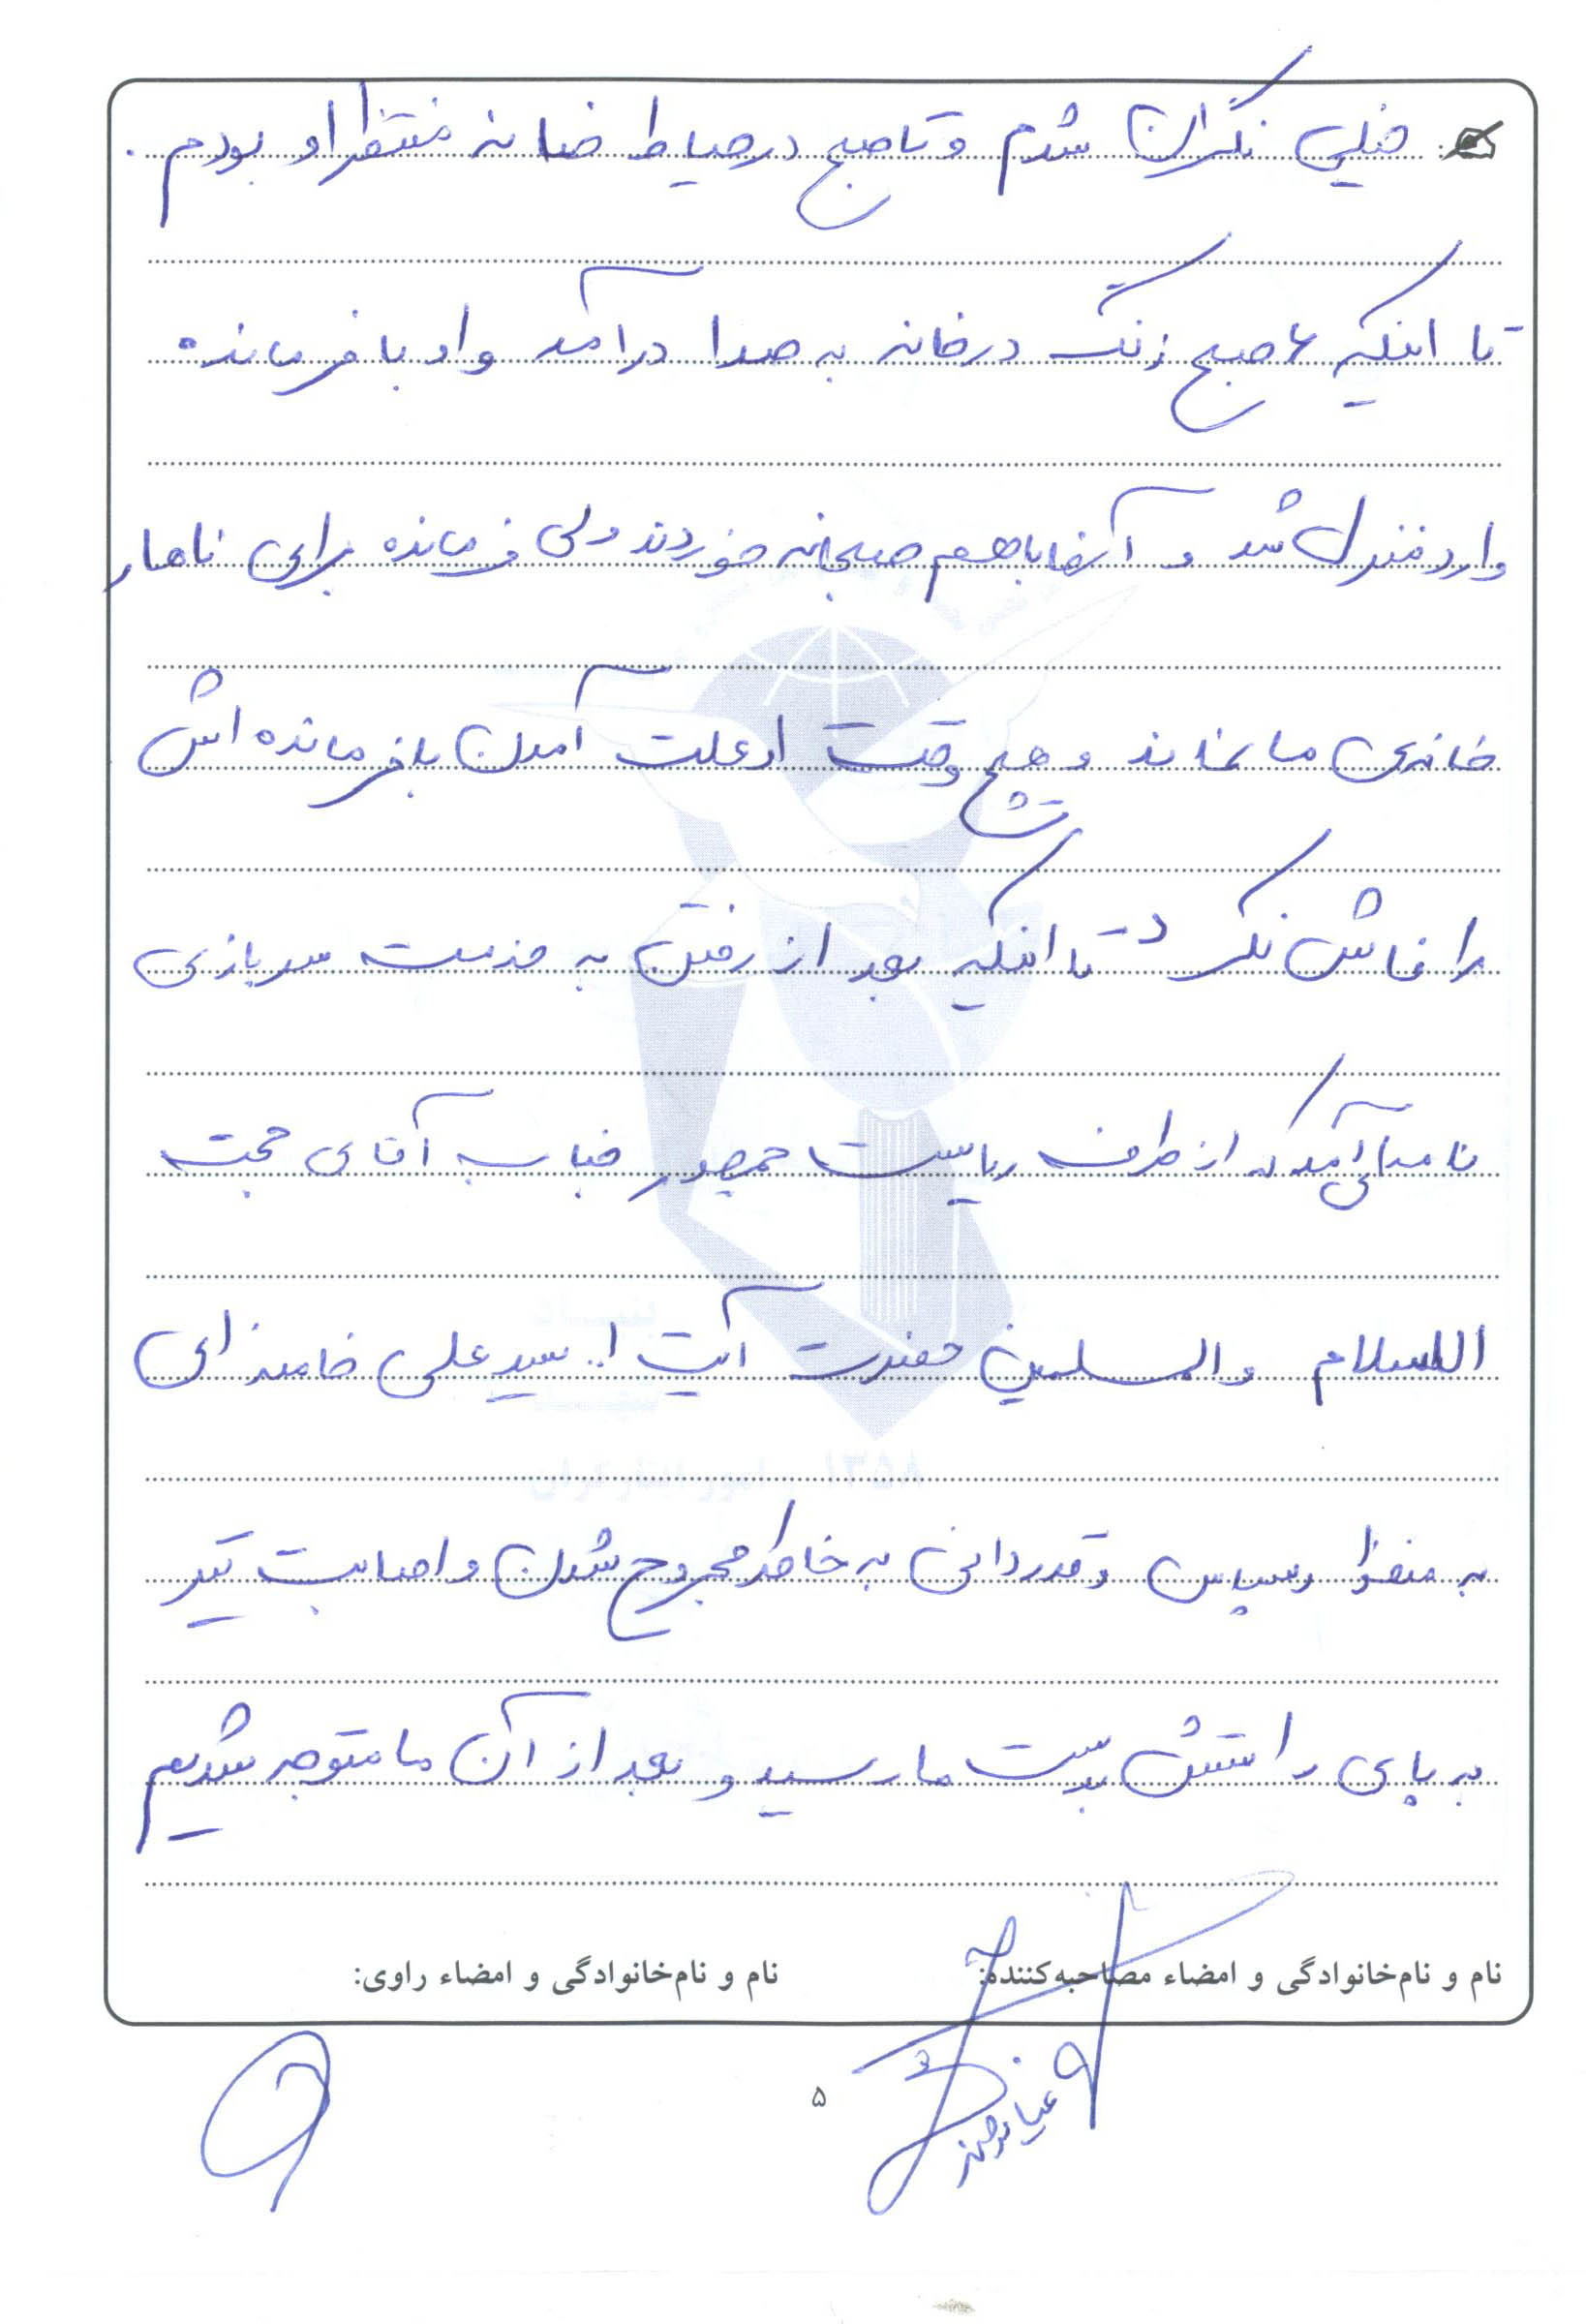 خیلی نگران شدم و تا صبح در حیاط خانه منتظر او بودم.
تا اینکه ۶ صبح زنگ در خانه به صدا درآمد و او با فرمانده
وارد منزل شد و آنها با هم صبحانه خوردند ولی فرمانده برای ناهار
خانه‌ی ما نماند و هیچ وقت او علت آمدن با فرمانده اش
را فاش نکرد تا اینکه بعد از رفتن به خدمت سربازی
نامه‌ای آمد که از طرف ریاست جمهور جناب آقای حجت
السلام والمسلمین حضرت آیت ا.. سید علی خامنه ای
به منظور سپاس و قدردانی به خاطر مجروح شدن و اصابت تیر
به پای راستش بدست ما رسید و بعد از آن ما متوجه شدیم
نام و نام‌خانوادگی و امضاء مصاحبه‌کننده:
نام و نام‌خانوادگی و امضاء راوی:
۵
۱۳۵۸